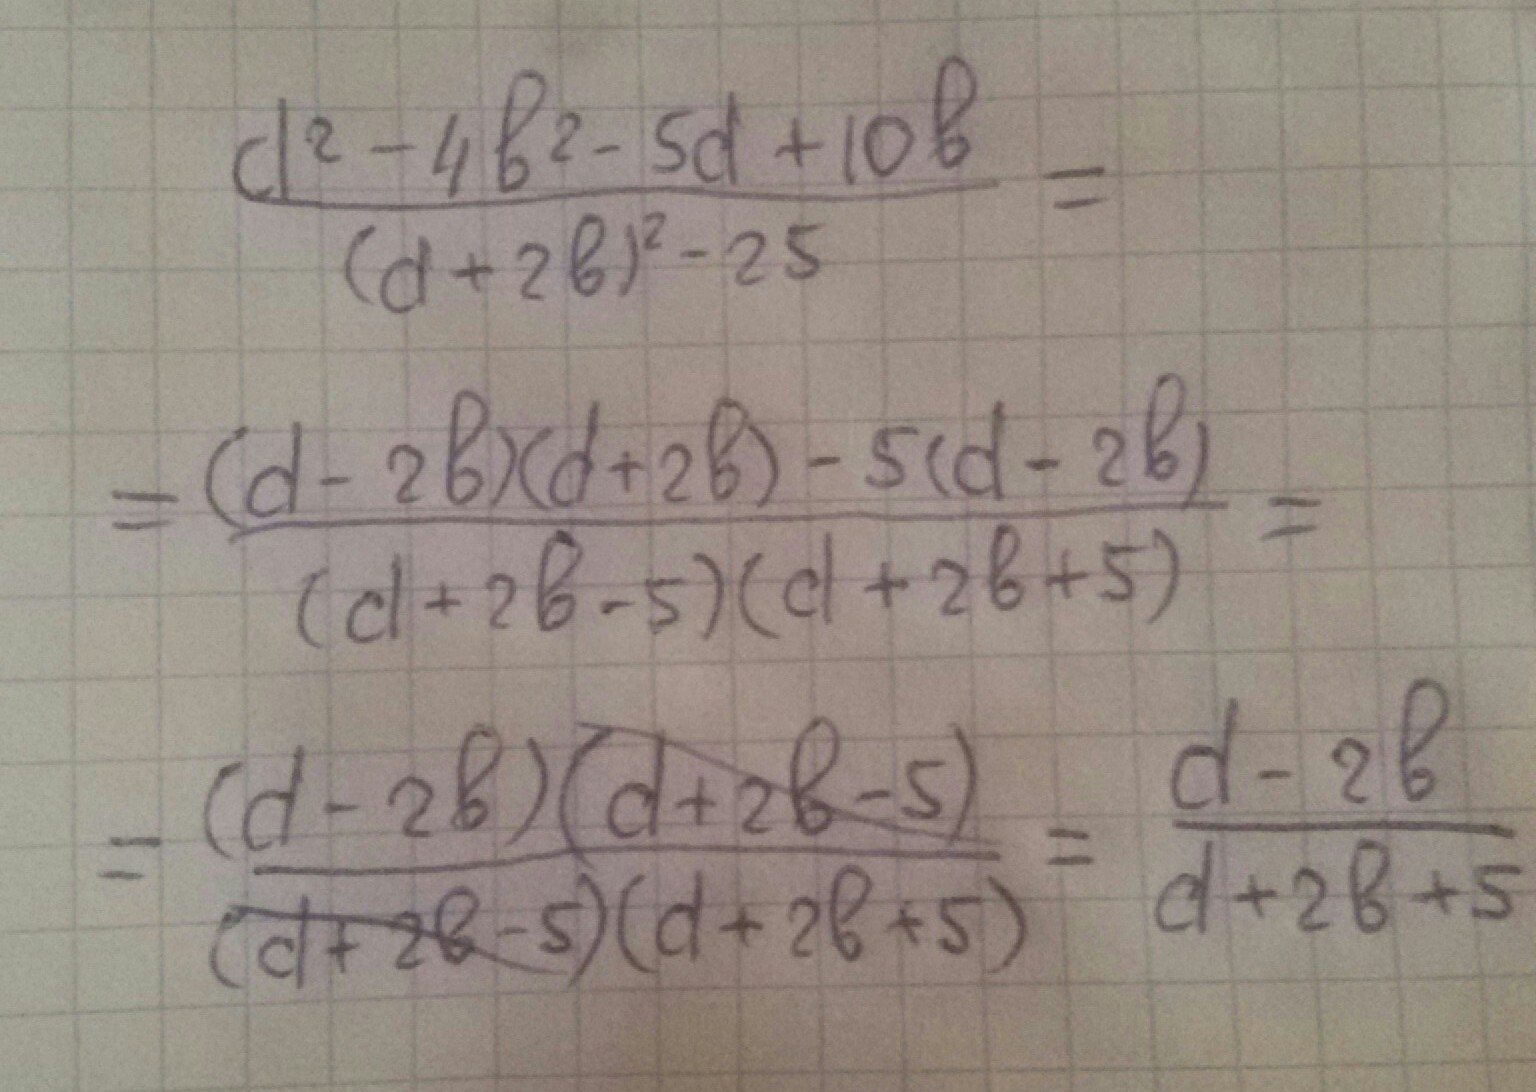 d² - 4b² - 5d + 10b =
(d + 2b)² - 25
= (d - 2b)(d + 2b) - 5(d - 2b) =
(d + 2b - 5)(d + 2b + 5)
= (d - 2b)(d + 2b - 5) = d - 2b
(d + 2b - 5)(d + 2b + 5) d + 2b + 5